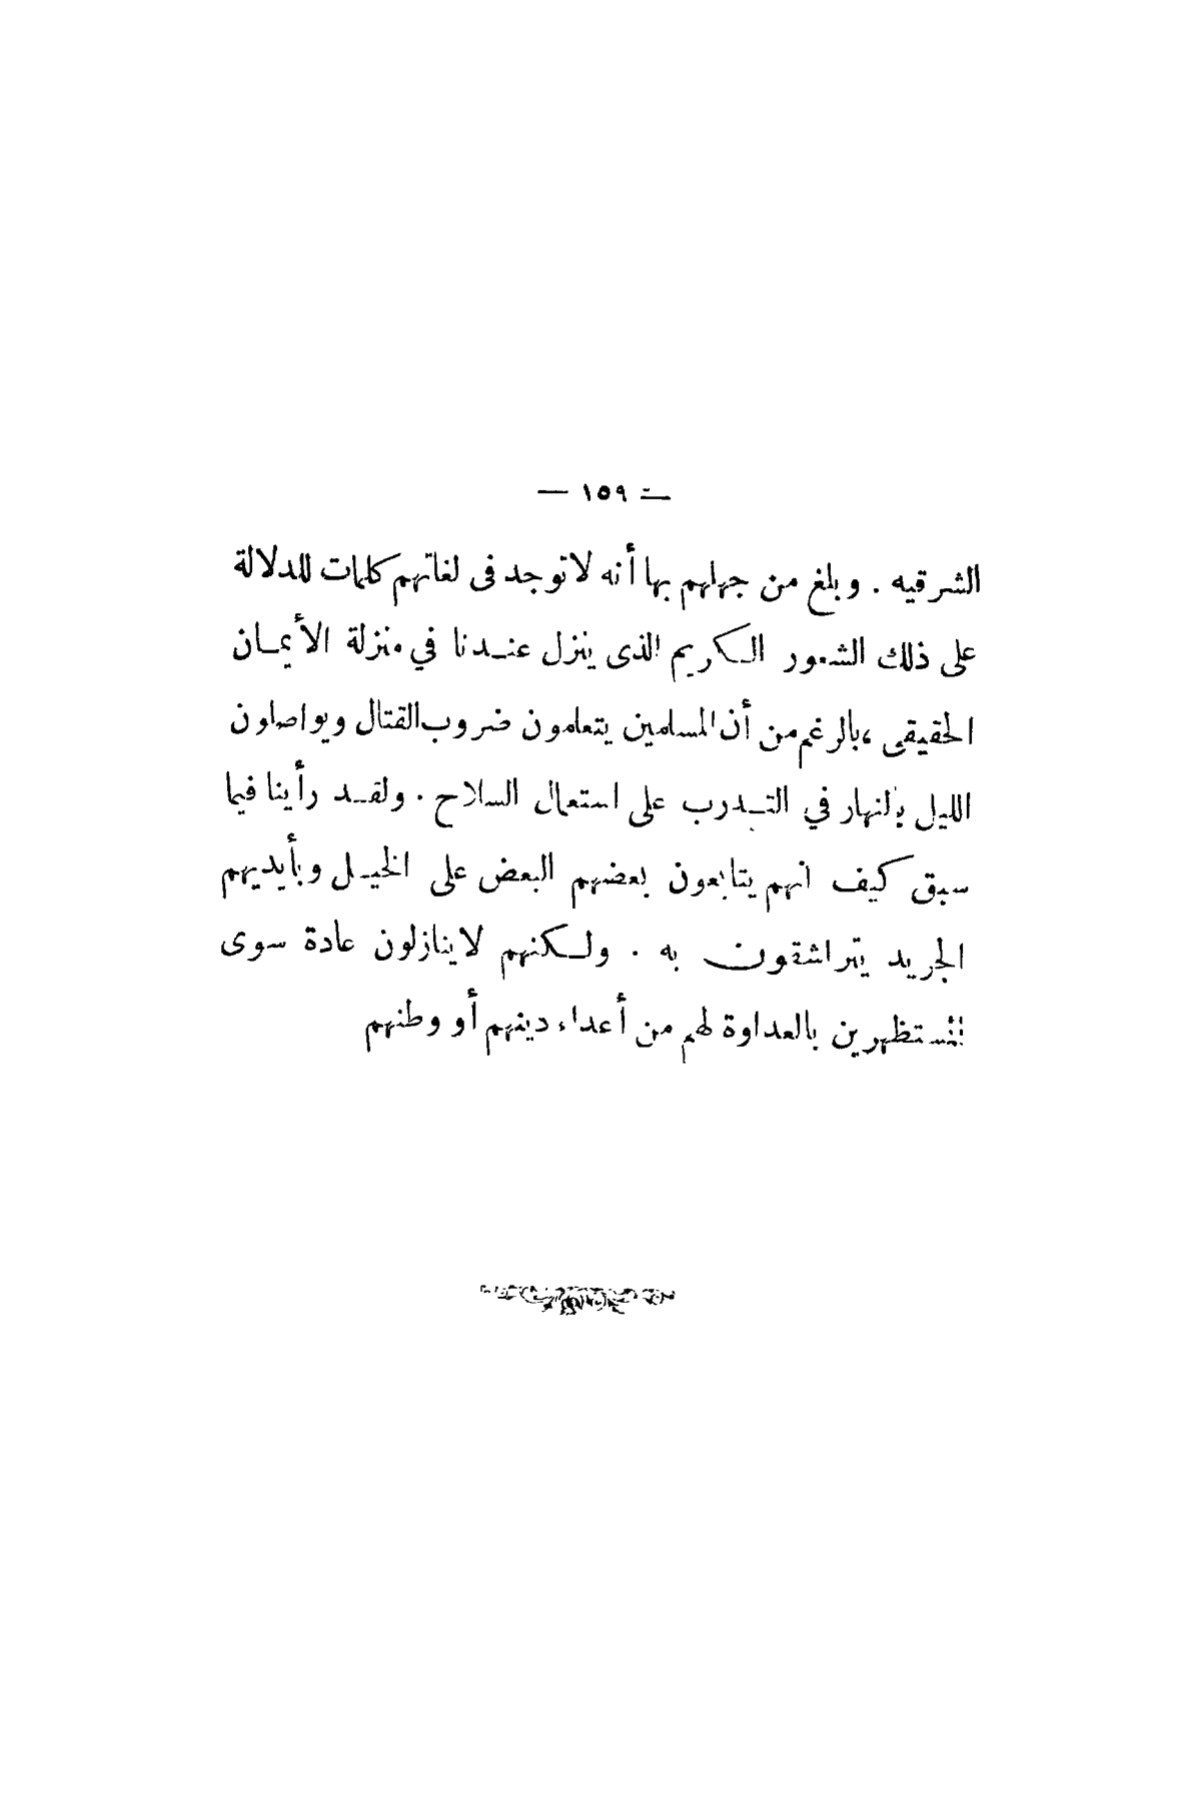 — ١٥٩ —
الشرقيه . وبلغ من جهلهم بها أنه لاتوجد فى لغاتهم كلمات للدلالة
على ذلك الشعور الكريم الذى ينزل عندنا في منزلة الأيمان
الحقيقى ، بالرغم من أن المسلمين يتعلمون ضروب القتال ويواصلون
الليل بالنهار في التدرب على استعمال السلاح . ولقد رأينا فيما
سبق كيف انهم يتابعون بعضهم البعض على الخيل وبأيديهم
الجريد يتراشقون به . ولكنهم لاينازلون عادة سوى
المستظهرين بالعداوة لهم من أعداء دينهم أو وطنهم